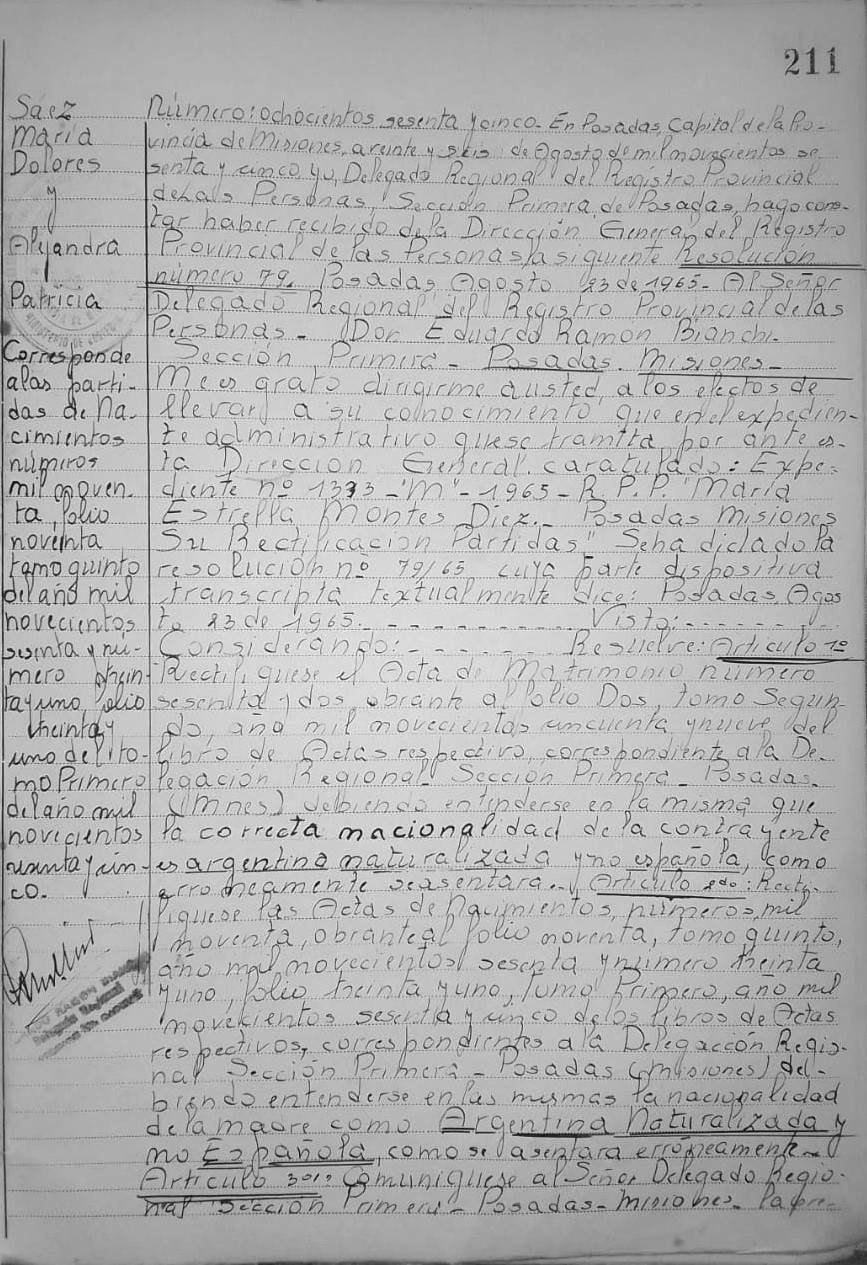 211
Saez
Maria
Dolores
y
Alejandra
Patricia
Corresponde
a las parti-
das de Na-
cimientos
números
mil noven-
ta, folio
noventa
tomo quinto
del año mil
novecientos
sesenta y nú-
mero trein-
ta y uno, folio
treinta y
uno del to-
mo Primero
del año mil
novecientos
sesenta y cin-
co.
Número: ochocientos sesenta y cinco. En Posadas, Capital de la Pro-
vincia de Misiones, a veinte y seis de Agosto de mil novecientos se
senta y cinco, yo, Delegado Regional del Registro Provincial
de Las Personas, Sección Primera, de Posadas, hago cons-
tar haber recibido de la Dirección General del Registro
Provincial de las Personas la siguiente Resolución
número 79. Posadas, Agosto 23 de 1965- Al Señor
Delegado Regional del Registro Provincial de las
Personas - Don Eduardo Ramón Bianchi.
Sección Primera - Posadas. Misiones -
Me es grato dirigirme a usted, a los efectos de
llevar a su conocimiento que en el expedien-
te administrativo que se tramita por ante es-
ta Dirección General. caratulado: Expe-
diente nº 1393 -"M"- 1965 - R. P. P. "María
Estrella Montes Diez.- Posadas Misiones
Su Rectificación Partidas" Se ha dictado la
resolución nº 79/65 cuya parte dispositiva
transcripta textualmente dice: Posadas, Agos
to 23 de 1965. - - - - - - - - - - Visto: - - - - - -
Considerando: - - - - - - Resuelve: Artículo 1º
Rectifíquese el Acta de Matrimonio número
sesenta y dos, obrante al folio Dos, tomo Segun-
do, año mil novecientos cincuenta y nueve del
libro de Actas respectivo, correspondiente a la De-
legación Regional Sección Primera - Posadas -
(Mnes) debiendo entenderse en la misma que
la correcta nacionalidad de la contrayente
es argentina naturalizada y no española, como
erróneamente se asentara.- Artículo 2do: Recti-
fíquese las Actas de Nacimientos, números, mil
noventa, obrante al folio noventa, tomo quinto,
año mil novecientos sesenta y número treinta
y uno, folio treinta y uno, tomo Primero, año mil
novecientos sesenta y cinco de los libros de Actas
respectivos, correspondientes a la Delegación Regio-
nal Sección Primera - Posadas (misiones) de-
biendo entenderse en las mismas la nacionalidad
de la madre como Argentina Naturalizada y
no Española, como se asentara erróneamente -
Artículo 3º: Comuníquese al Señor Delegado Regio-
nal Sección Primera - Posadas - Misiones - la pre-